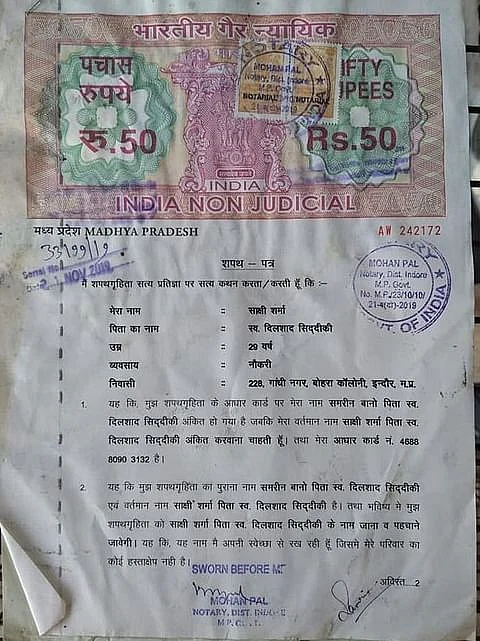 भारतीय गैर न्यायिक
पचास
रुपये
रु.50
FIFTY
RUPEES
Rs.50
NOTARY
MOHAN PAL
Notary, Dist. Indore
M.P. Govt.
NOTARIAL
NOTARIAL
INDIA
INDIA NON JUDICIAL
मध्य प्रदेश MADHYA PRADESH
AW 242172
Serial No.
NOV 2019
NOTARY
MOHAN PAL
Notary, Dist. Indore
M.P. Govt.
No. M.P./23/10/10/
GOVT. OF INDIA
शपथ – पत्र
मैं शपथगृहिता सत्य प्रतिज्ञा पर सत्य कथन करता/करती हूँ कि :–
मेरा नाम : साक्षी शर्मा
पिता का नाम : स्व. दिलशाद सिददीकी
उम्र : 29 वर्ष
व्यवसाय : नौकरी
निवासी : 228, गांधी नगर, बोहरा कॉलोनी, इन्दौर, म.प्र.
1. यह कि, मुझ शपथगृहिता का आधार कार्ड पर मेरा नाम समरीन बानो पिता स्व.
दिलशाद सिददीकी अंकित हो गया है जबकि मेरा वर्तमान नाम साक्षी शर्मा पिता स्व.
दिलशाद सिददीकी अंकित करवाना चाहती हूँ। तथा मेरा आधार कार्ड नं. 4688
8090 3132 है।
2. यह कि मुझ शपथगृहिता का पुराना नाम समरीन बानो पिता स्व. दिलशाद सिददीकी
एवं वर्तमान नाम साक्षी शर्मा पिता स्व. दिलशाद सिददीकी है। तथा भविष्य मे मुझ
शपथगृहिता को साक्षी शर्मा पिता स्व. दिलशाद सिददीकी के नाम जाना व पहचाने
जावेगी। यह कि, यह नाम मै अपनी स्वेच्छा से रख रही हूँ जिसमे मेरे परिवार का
कोई हस्ताक्षेप नही है।
SWORN BEFORE ME
MOHAN PAL
NOTARY, DIST. INDORE
M.P. GOVT.
अविरत...2